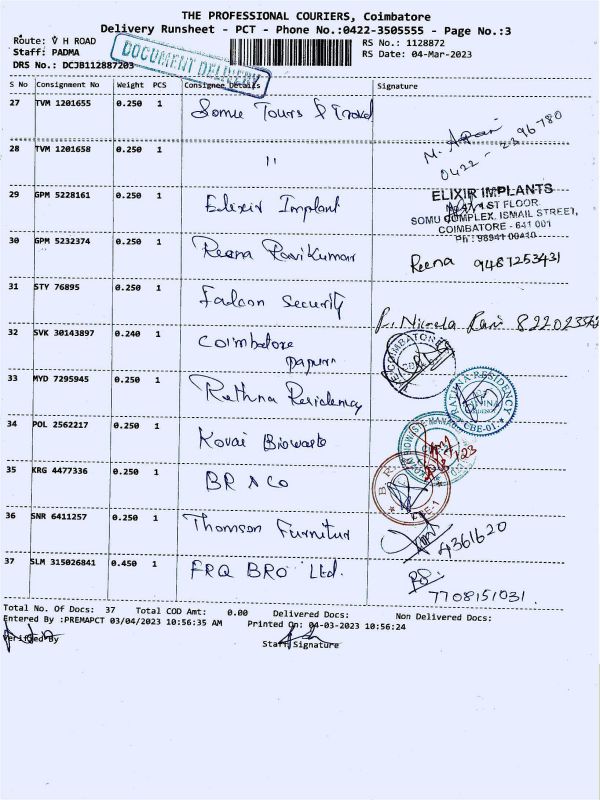 THE PROFESSIONAL COURIERS, Coimbatore
Delivery Runsheet - PCT - Phone No.:0422-3505555 - Page No.:3
Route: V H ROAD
RS No.: 1128872
Staff: PADMA
RS Date: 04-Mar-2023
DRS No.: DCJB112887203
DOCUMENT DELIVERY
S No Consignment No Weight PCS Consignee Details Signature
27 TVM 1201655 0.250 1 Somu Tours & Travel
28 TVM 1201658 0.250 1 "
0422 - 2396780
29 GPM 5228161 0.250 1 Elixir Implant
ELIXIR IMPLANTS
1ST FLOOR
SOMU COMPLEX, ISMAIL STREET,
COIMBATORE - 641 001
Ph : 98941 00410
30 GPM 5232374 0.250 1 Reena Ravikumar Reena 9487253431
31 STY 76895 0.250 1 Falcon Security
32 SVK 30143897 0.240 1 Coimbatore
COIMBATORE
33 MYD 7295945 0.250 1 Rathna Residency
RATHNA RESIDENCY
CBE-01
34 POL 2562217 0.250 1 Kovai Biowaste
35 KRG 4477336 0.250 1 BR & Co
36 SNR 6411257 0.250 1 Thomson Furnitur
4361620
37 SLM 315026841 0.450 1 PRQ BRO Ltd.
7708151031
Total No. Of Docs: 37 Total COD Amt: 0.00 Delivered Docs: Non Delivered Docs:
Entered By :PREMAPCT 03/04/2023 10:56:35 AM Printed On: 04-03-2023 10:56:24
Verified By Staff Signature